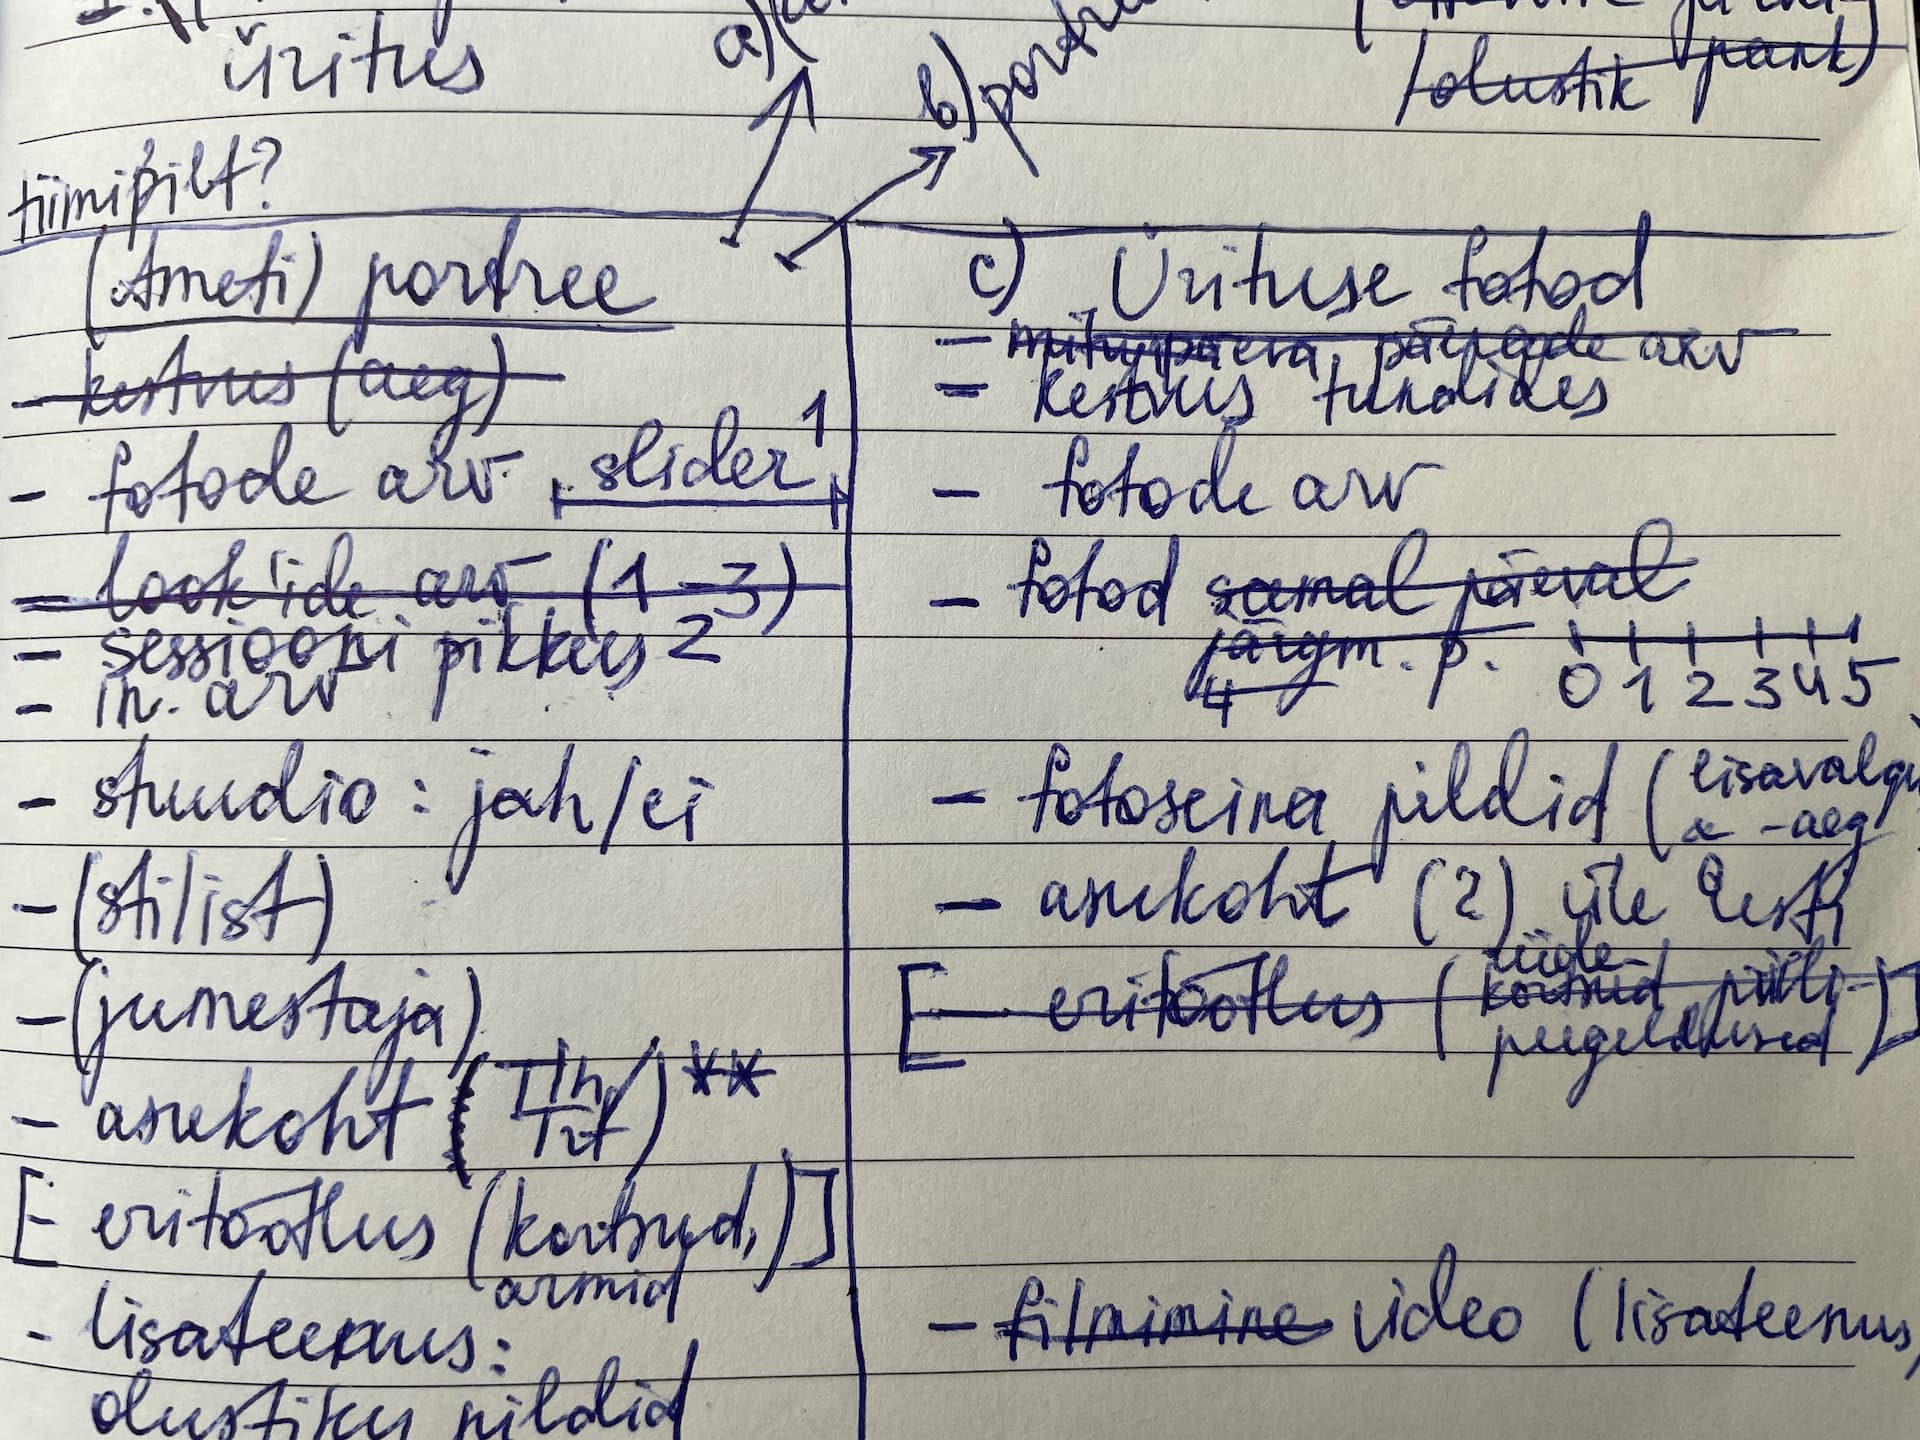 üritus
a)
b) portree
/olustik pank)
tiimipilt?
(Ameti) portree
- kestvus (aeg)
- fotode arv slider 1
- look'ide arv (1-3)
- sessiooni pikkus 2
- in. arv
- stuudio: jah/ei
- (stilist)
- (jumestaja)
- asukoht (Tln/Trt) **
[- eritöötlus (kortsud,)]
armid
- lisateenus:
olustiku pildid
c) Ürituse fotod
- mitu päeva, päevade arv
- kestvus tundides
- fotode arv
- fotod samal päeval
järgm. p. 0 1 2 3 4 5
4
- fotoseina pildid (lisavalgu
-aeg
- asukoht (2) üle Eesti
[- eritöötlus (riide-
kortsud, prilli-
peegeldused)]
- filmimine video (lisateenus,